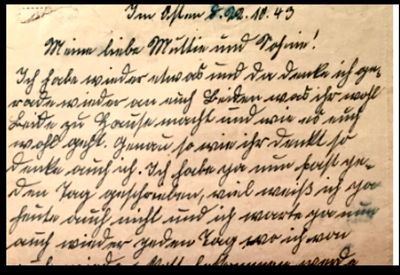 Im Osten d. 22.10.43
Meine liebe Muttie und Sohnie!
Ich habe wieder etwas und da denke ich ge-
rade wieder an euch Beiden was ihr wohl
Beide zu Hause macht und wie es euch
wohl geht. Genau so wie ihr denkt so
denke auch ich. Ich habe ja nun fast je-
den Tag geschrieben, viel weiß ich ja
heute auch nicht und ich warte ja nun
auch wieder jeden Tag wo ich von
bekommen werde